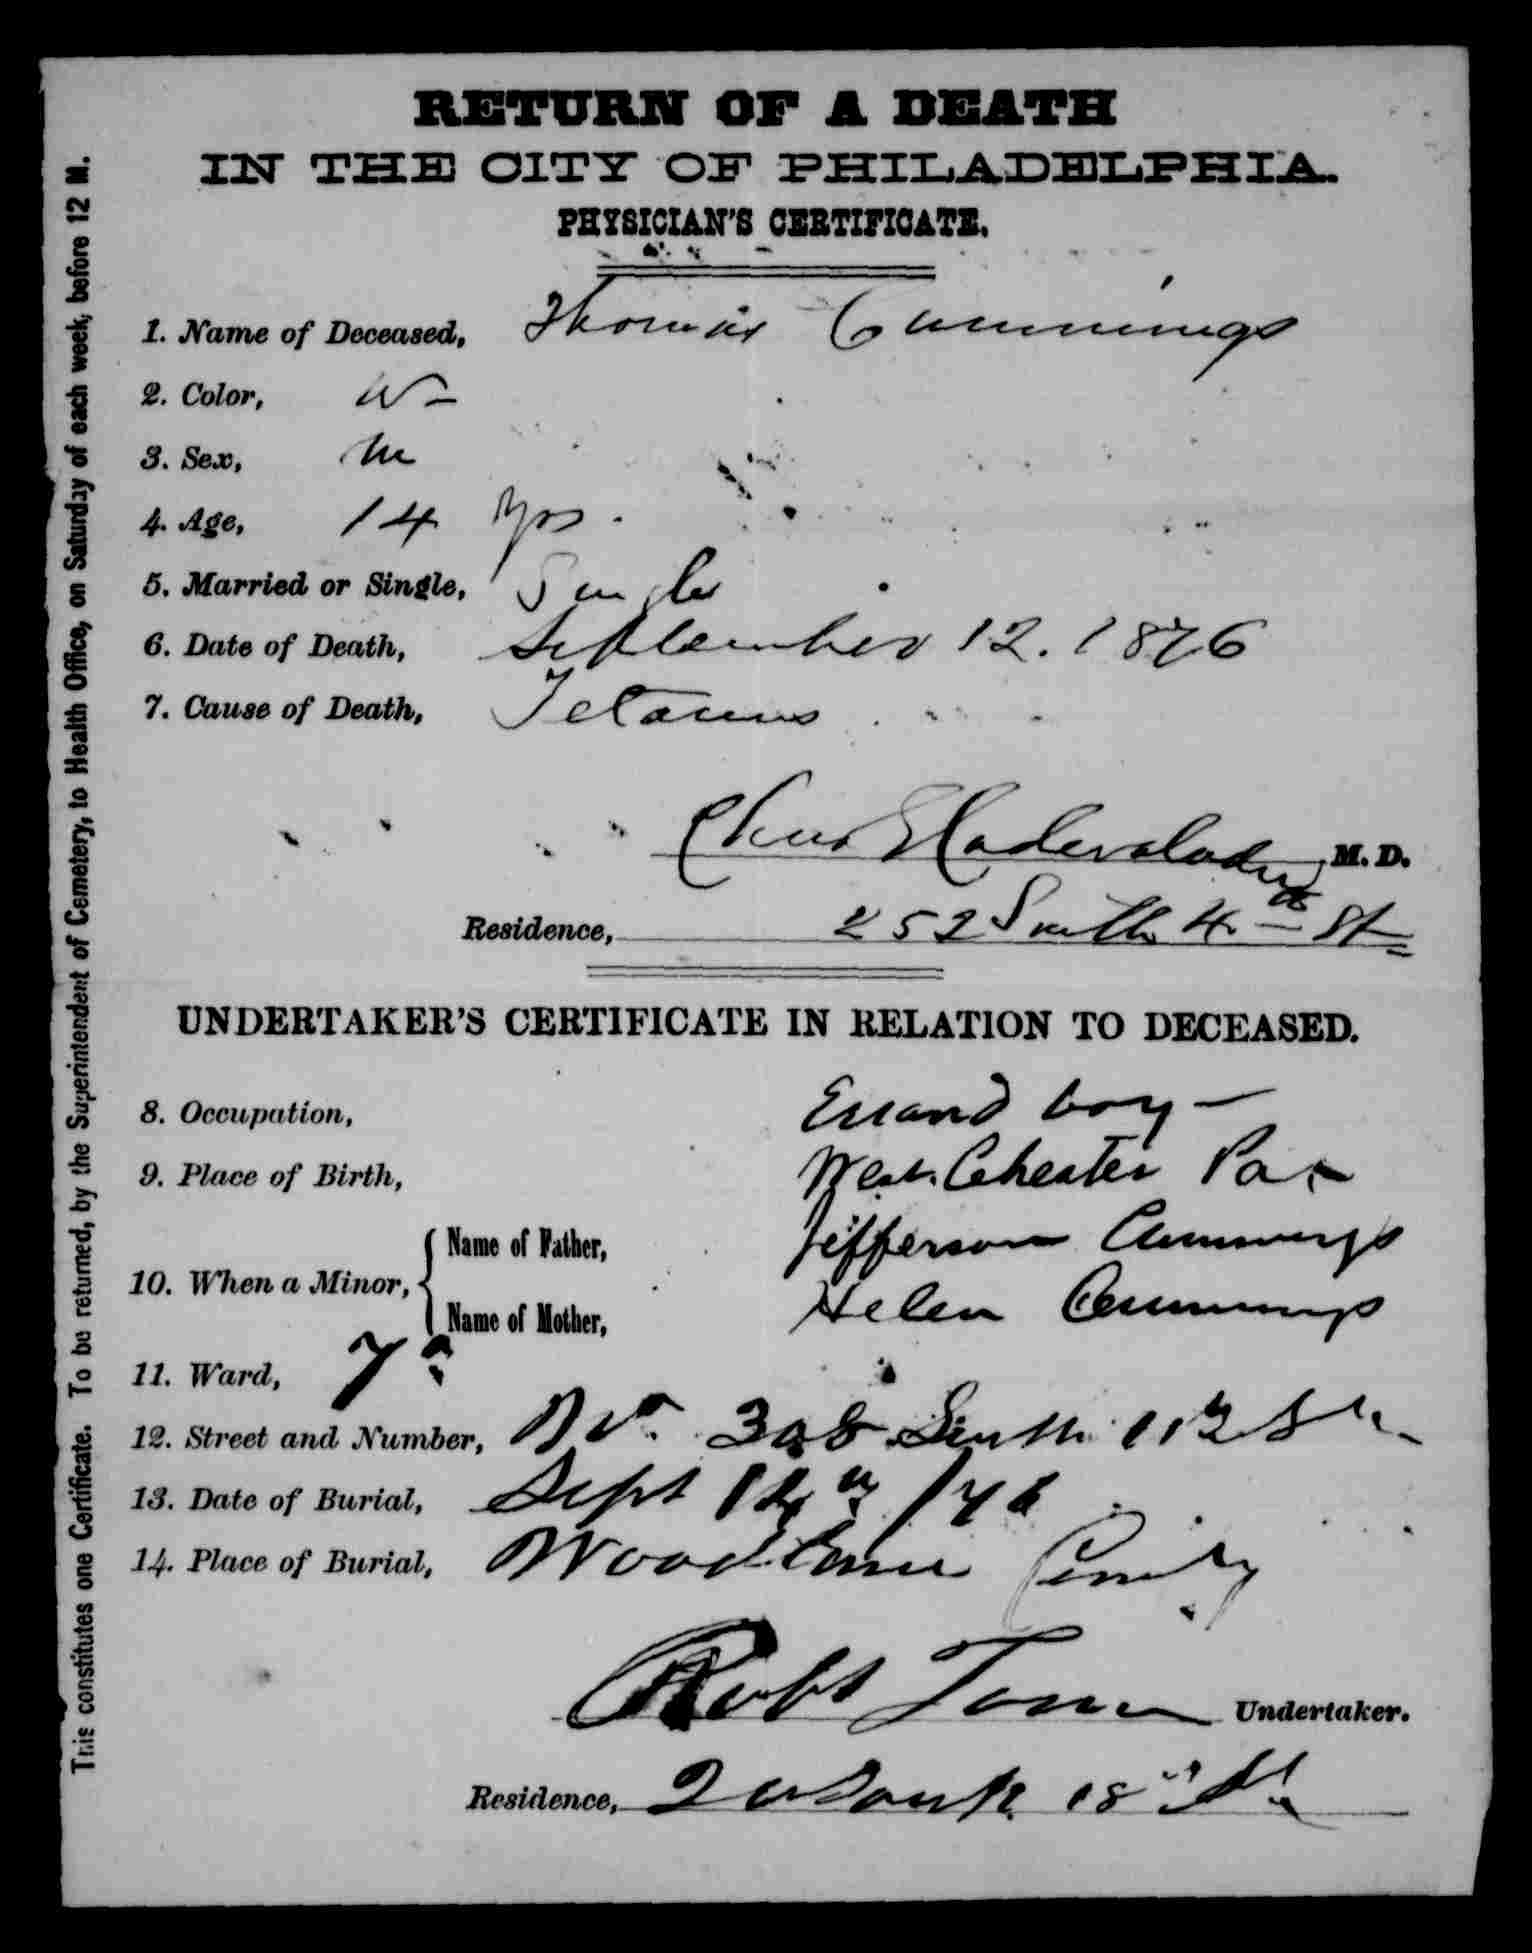 RETURN OF A DEATH
IN THE CITY OF PHILADELPHIA.
PHYSICIAN'S CERTIFICATE.
1. Name of Deceased, Thomas Cummings
2. Color, W
3. Sex, M
4. Age, 14 Yrs.
5. Married or Single, Single
6. Date of Death, September 12. 1876
7. Cause of Death, Tetanus
M. D.
Residence, 252 South 4th St
UNDERTAKER'S CERTIFICATE IN RELATION TO DECEASED.
8. Occupation, Errand boy
9. Place of Birth, West Chester Pa
10. When a Minor, { Name of Father, Jefferson Cummings
Name of Mother, Helen Cummings
11. Ward, 7
12. Street and Number, No. 308 South St
13. Date of Burial, Sept 14th /76
14. Place of Burial, Woodlawn
Robt Undertaker.
Residence, South 18th St
This constitutes one Certificate. To be returned, by the Superintendent of Cemetery, to Health Office, on Saturday of each week, before 12 M.